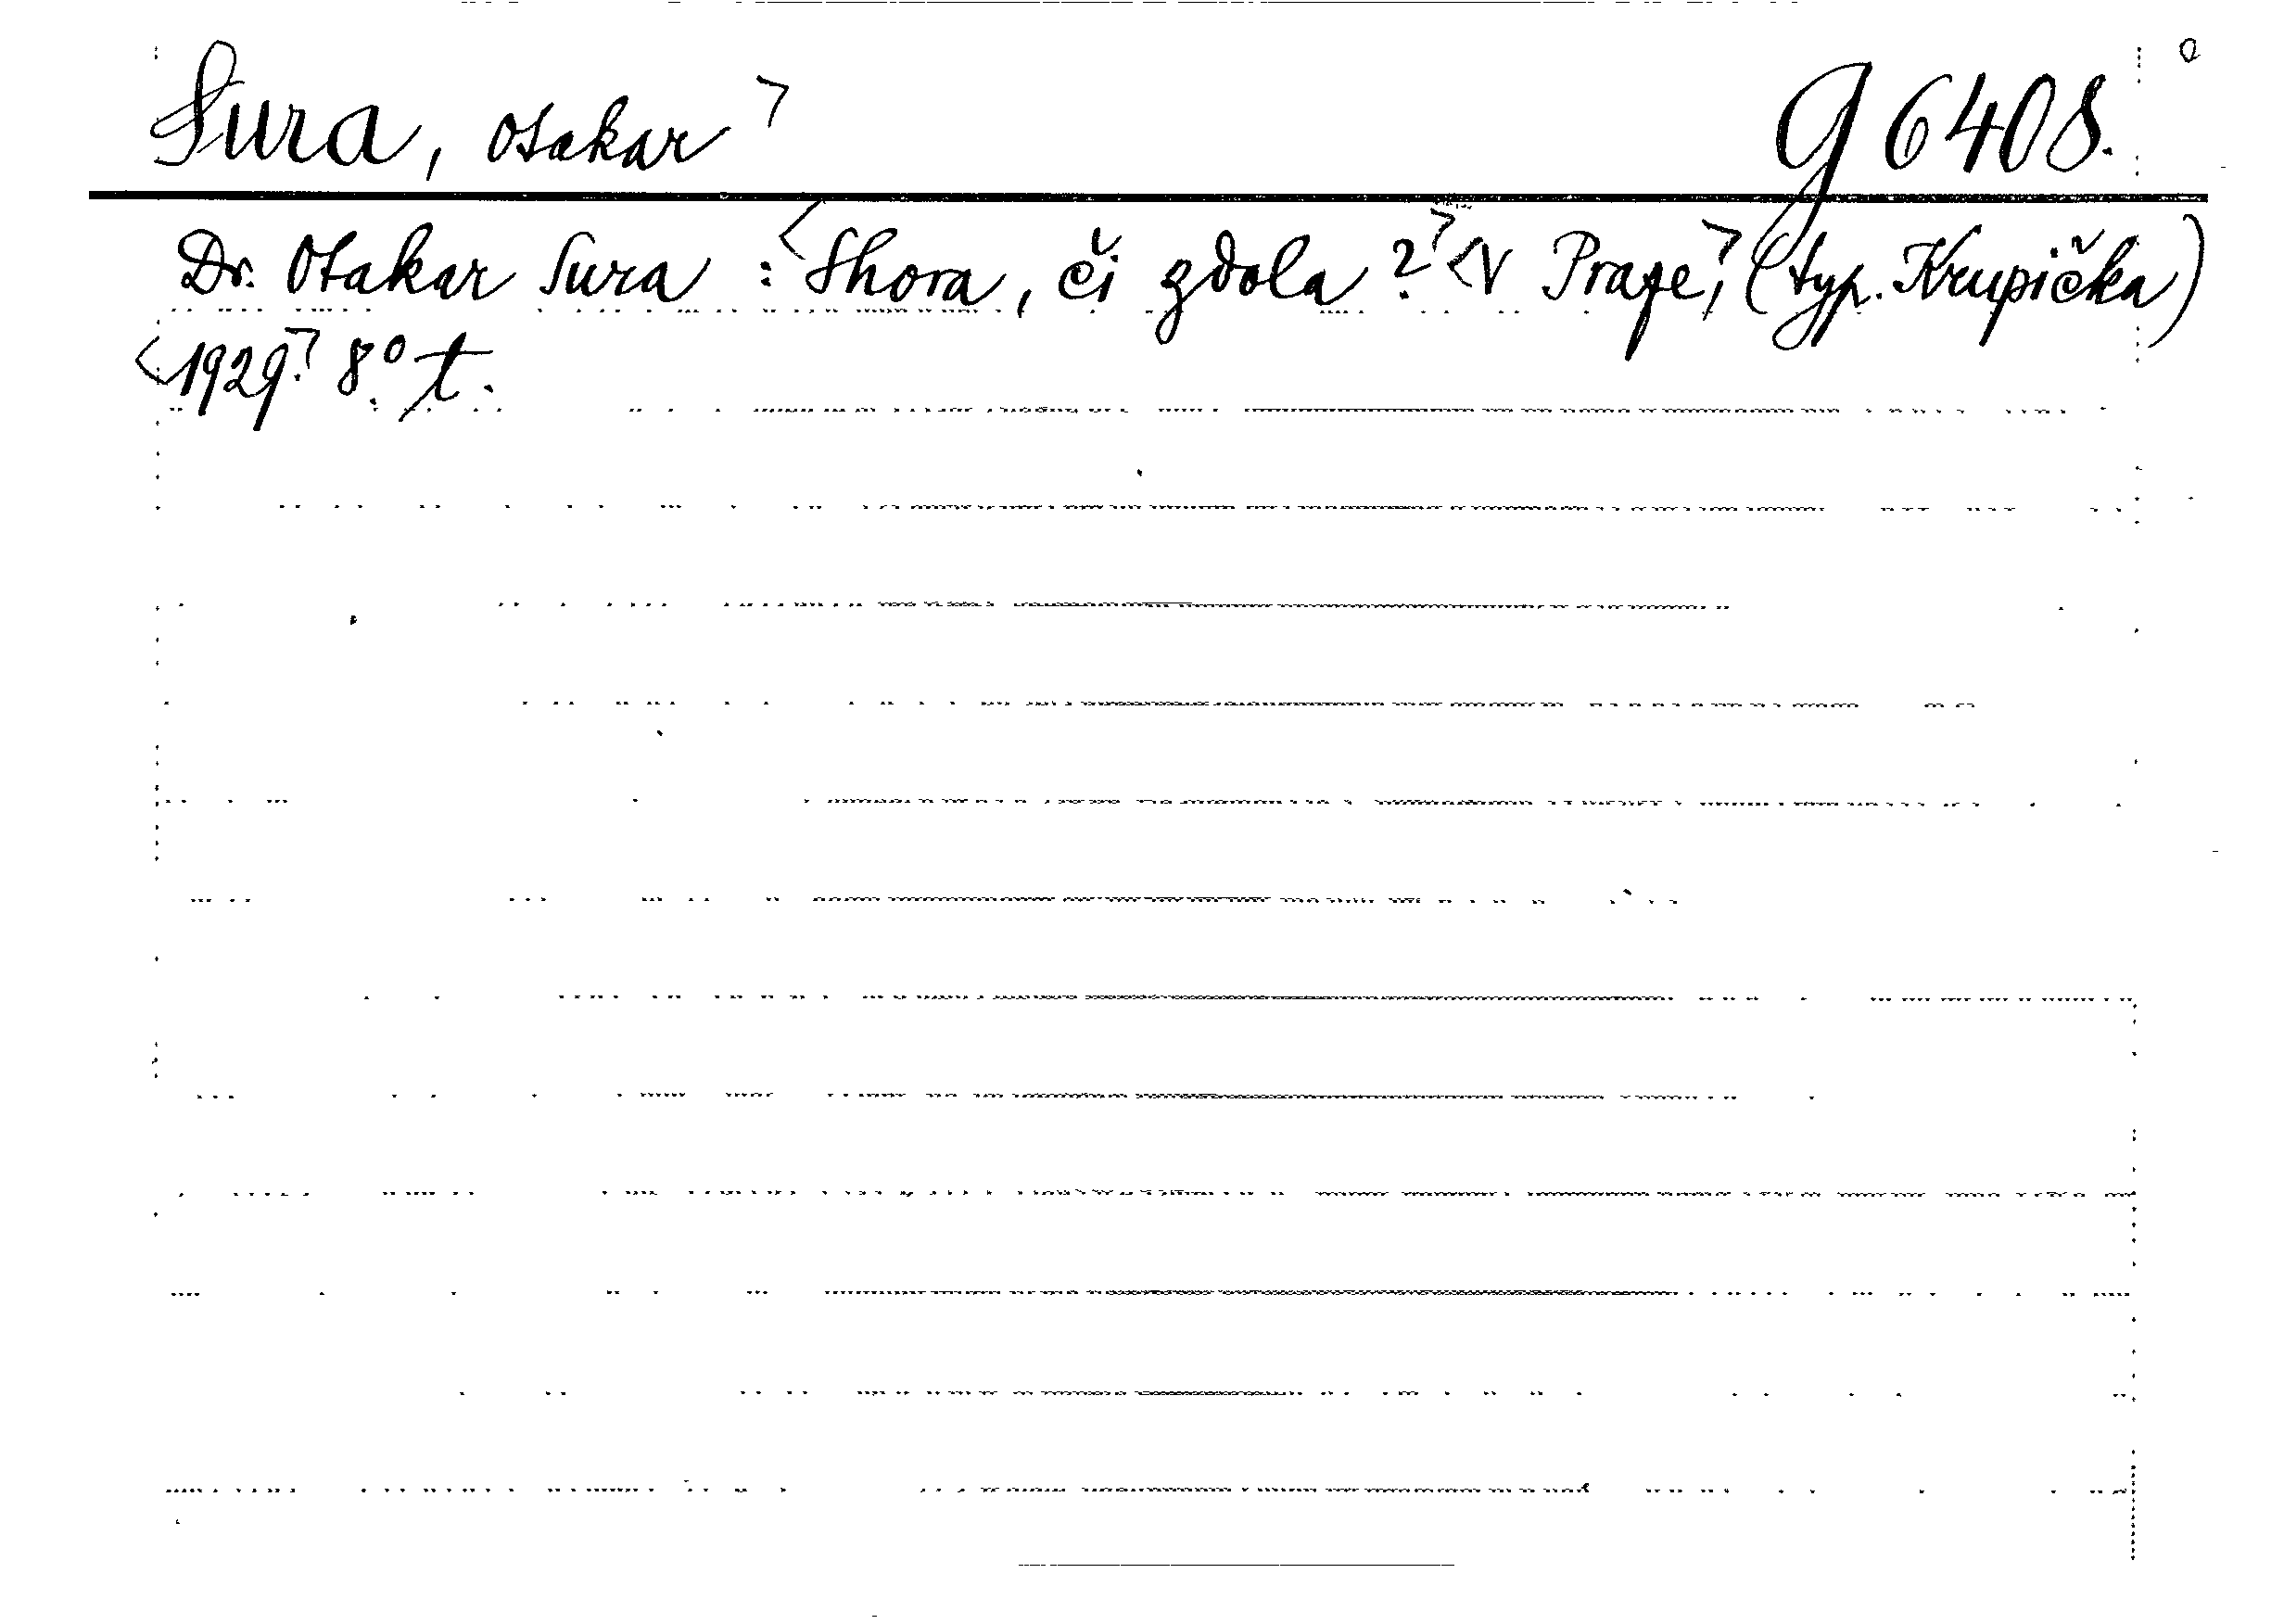 Sura, Otakar ꓶ g 6408.
Dr. Otakar Sura : <Shora, či zdola ?ꓶ <V Praze,ꓶ (typ. Krupička)
<1929.ꓶ 8.º t.